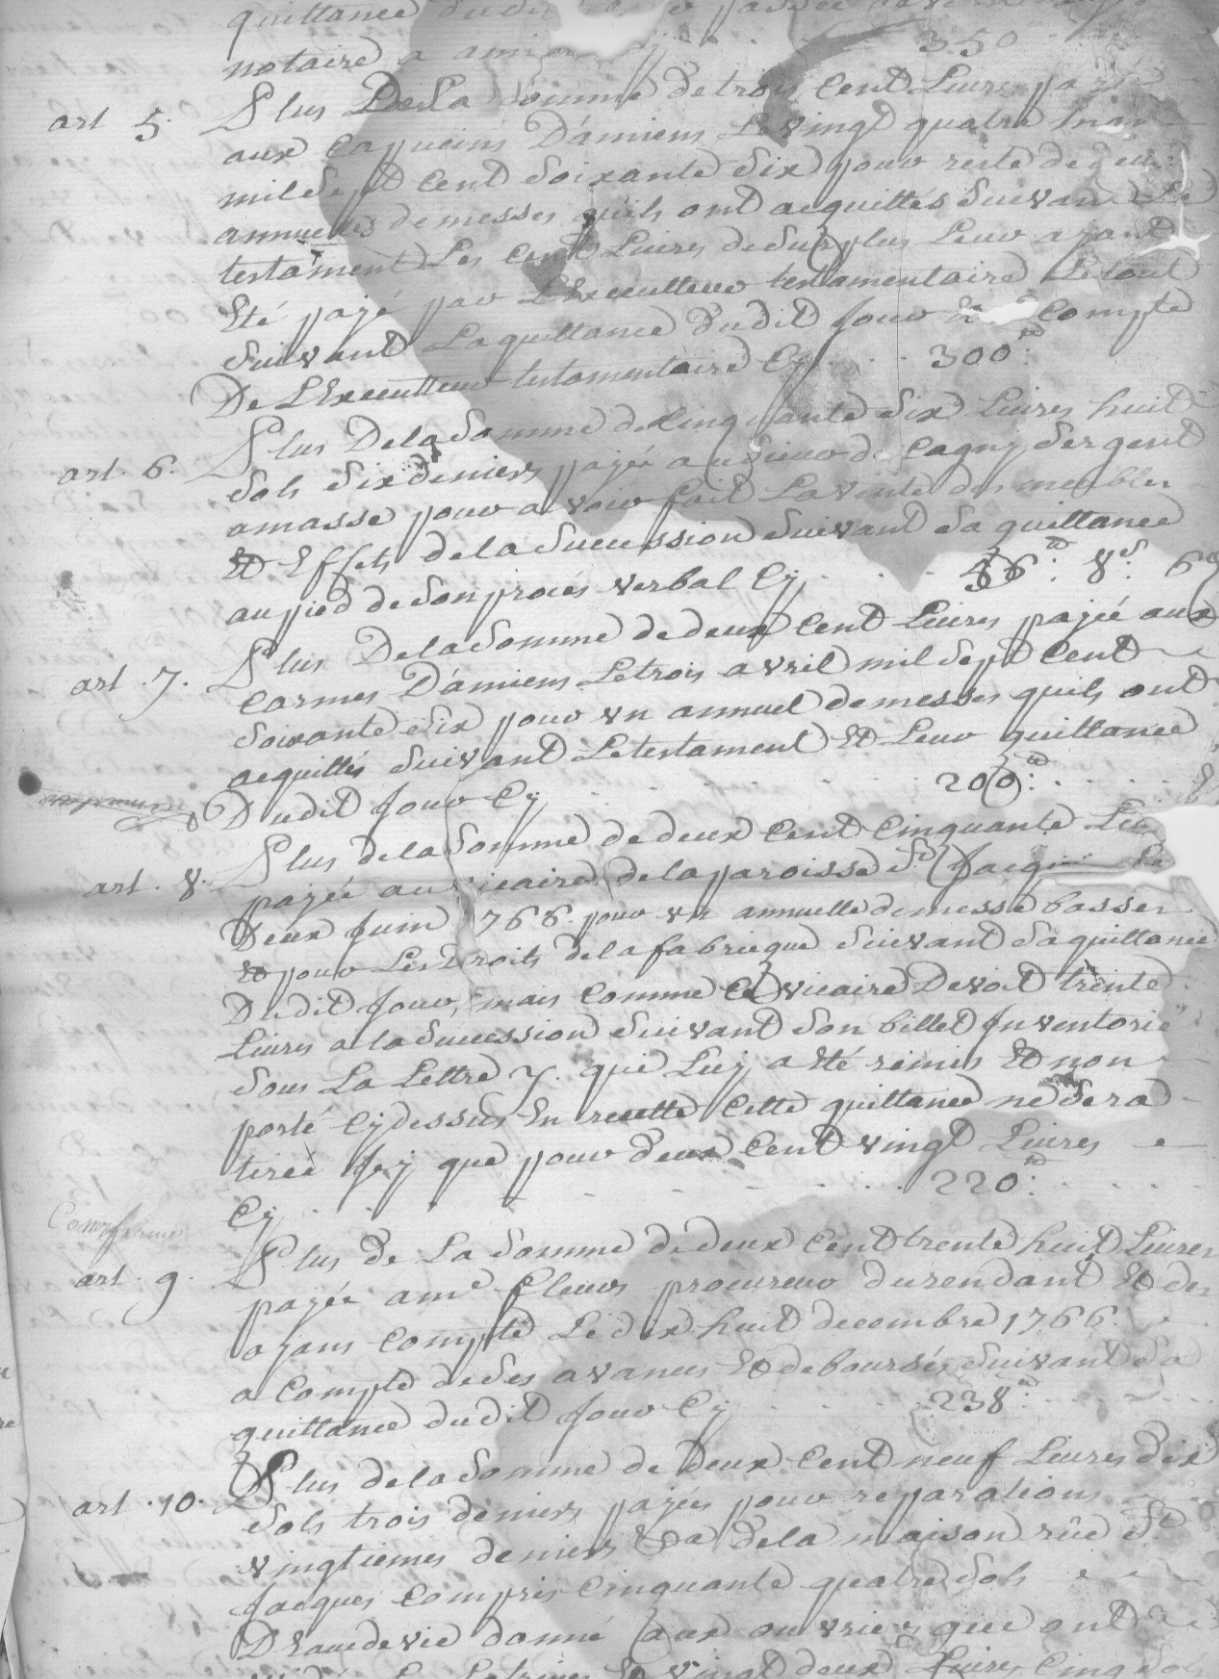 quittance dudit passée
notaire a ami 350
art 5. Plus De La Somme de trois Cent Livres payée
aux Capucins D'amiens Le vingt quatre
mil Sept Cent Soixante Six pour reste de deux
annuelles de messes quils ont acquittés Suivant Le
testament Les Cent Livres de Surplus Leur ayant
Eté payé par L'Executteur testamentaire Le tout
Suivant La quittance Dudit Jour Et Compte
De L'Executteur testamentaire Cy . . . 300tt.
art. 6. Plus De la Somme de Cinquante Six Livres huit
Sols Six deniers payée au Sieur de Cagny Sergent
amasse pour avoir fait La vente des meubles
Et Effets de la Succession Suivant Sa quittance
au pied de Son procès verbal Cy . . . 56tt. 8s. 6d
art. 7. Plus De la Somme de deux Cent Livres payée aux
Carmes D'amiens Le trois avril mil Sept Cent
Soixante Six pour un annuel de messes quils ont
acquittés Suivant Le testament Et Leur quittance
Dudit Jour Cy . . . 200tt.
art. 8. Plus de la Somme de deux Cent Cinquante
payée au vicaire de la paroisse St. Jacques Le
Deux Juin 1766. pour un annuelle de messe basses
Et pour Les Droits de la fabricque Suivant Sa quittance
Dudit Jour, mais Comme Ce vicaire Devoit trente
Livres a la Succession Suivant Son billet Inventorié
Sous La Lettre y. qui Luy a Eté remis Et non
porté Cy dessus En recette Cette quittance ne Sera
tirée Icy que pour deux Cent vingt Livres
Cy . . . 220tt.
art. 9. Plus De La Somme de deux Cent trente huit Livres
payée a me. fleurs procureur du rendant Et des
ayans Compte Le dix huit decembre 1766.
a Compte de Ses avances Et deboursés Suivant Sa
quittance dudit Jour Cy . . . 238tt.
art. 10. Plus de la Somme de Deux Cent neuf Livres Dix
Sols trois deniers payés pour reparations
vingtiemes deniers &a de la maison rüe St.
Jacques Compris Cinquante quatre Sols
D'Eau de vie donné aux ouvriers qui ont
Et vingt deux Livres Cinq